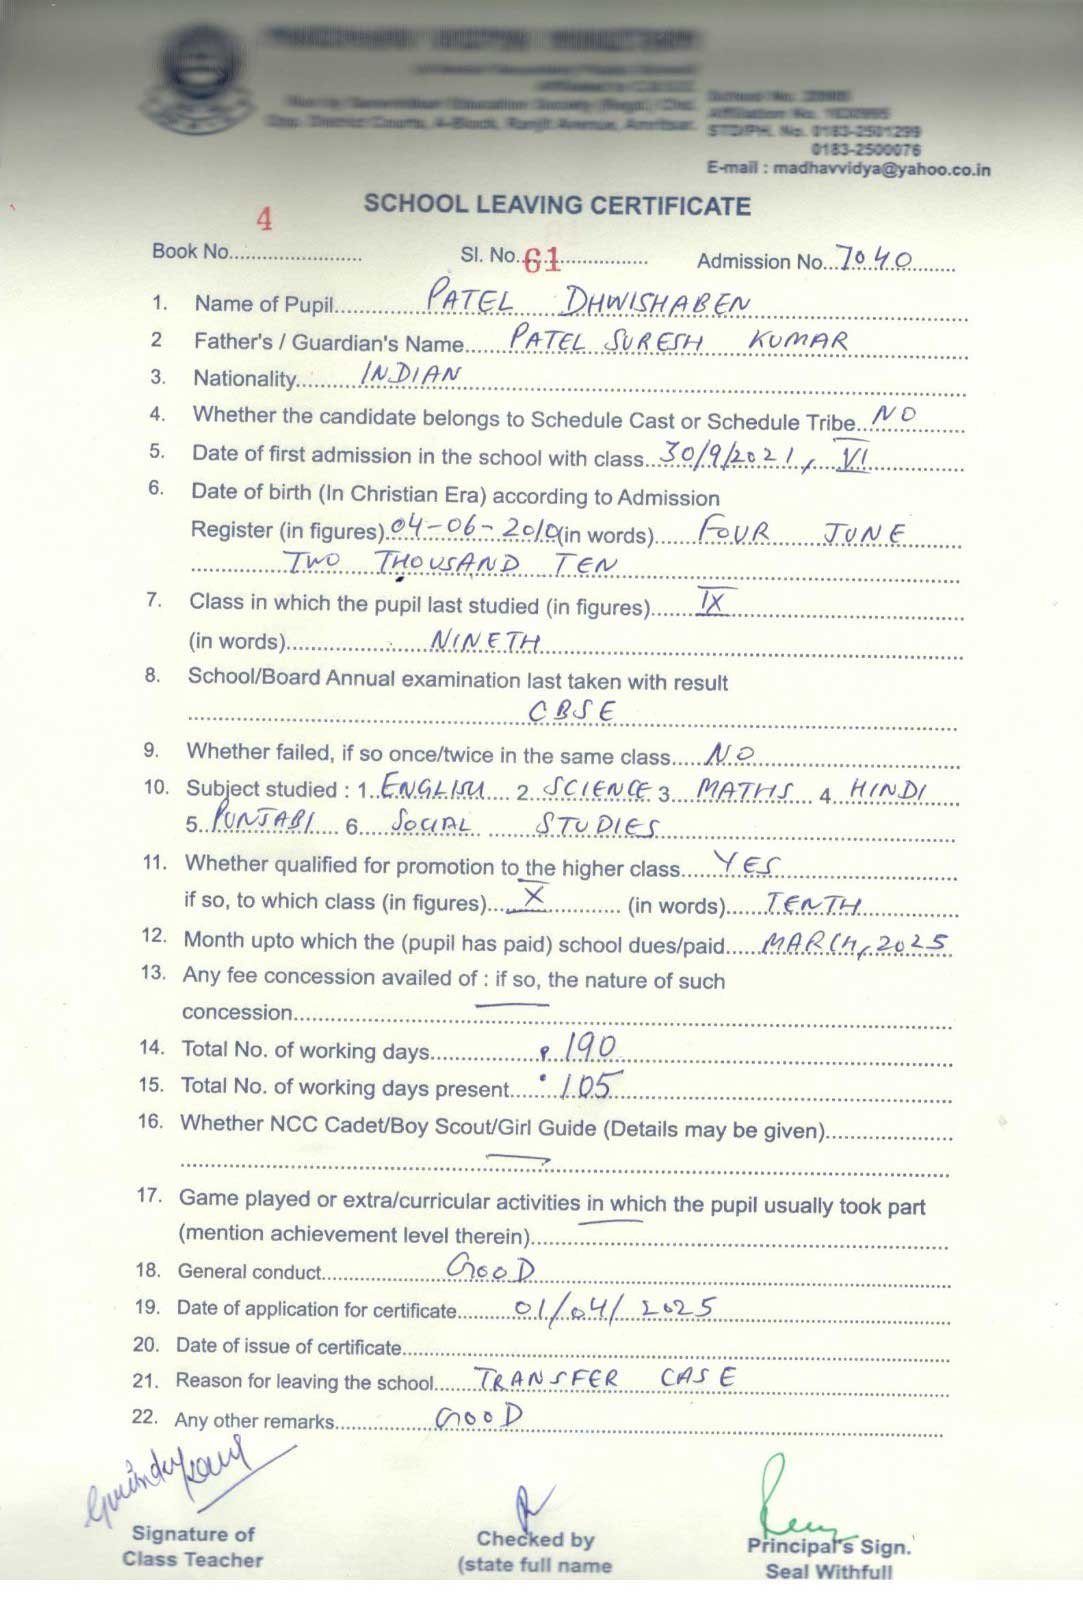 STD/PH. No. 0183-2501299
0183-2500076
E-mail : madhavvidya@yahoo.co.in
SCHOOL LEAVING CERTIFICATE
Book No. 4 Sl. No. 61 Admission No. 7040
1. Name of Pupil PATEL DHWISHABEN
2 Father's / Guardian's Name PATEL SURESH KUMAR
3. Nationality INDIAN
4. Whether the candidate belongs to Schedule Cast or Schedule Tribe NO
5. Date of first admission in the school with class 30/9/2021, VI
6. Date of birth (In Christian Era) according to Admission
Register (in figures) 04-06-2010 (in words) FOUR JUNE
TWO THOUSAND TEN
7. Class in which the pupil last studied (in figures) IX
(in words) NINETH
8. School/Board Annual examination last taken with result
CBSE
9. Whether failed, if so once/twice in the same class NO
10. Subject studied : 1. ENGLISH 2 SCIENCE 3 MATHS 4 HINDI
5 PUNJABI 6 SOCIAL STUDIES
11. Whether qualified for promotion to the higher class YES
if so, to which class (in figures) X (in words) TENTH
12. Month upto which the (pupil has paid) school dues/paid MARCH, 2025
13. Any fee concession availed of : if so, the nature of such
concession
14. Total No. of working days 190
15. Total No. of working days present 105
16. Whether NCC Cadet/Boy Scout/Girl Guide (Details may be given)
17. Game played or extra/curricular activities in which the pupil usually took part
(mention achievement level therein)
18. General conduct GOOD
19. Date of application for certificate 01/04/2025
20. Date of issue of certificate
21. Reason for leaving the school TRANSFER CASE
22. Any other remarks GOOD
Signature of Checked by Principal's Sign.
Class Teacher (state full name Seal Withfull